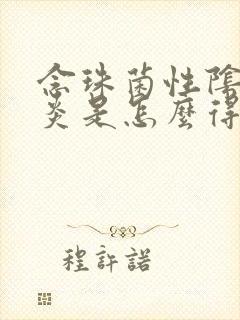 念珠菌性陰
炎是怎麼得
程許諾